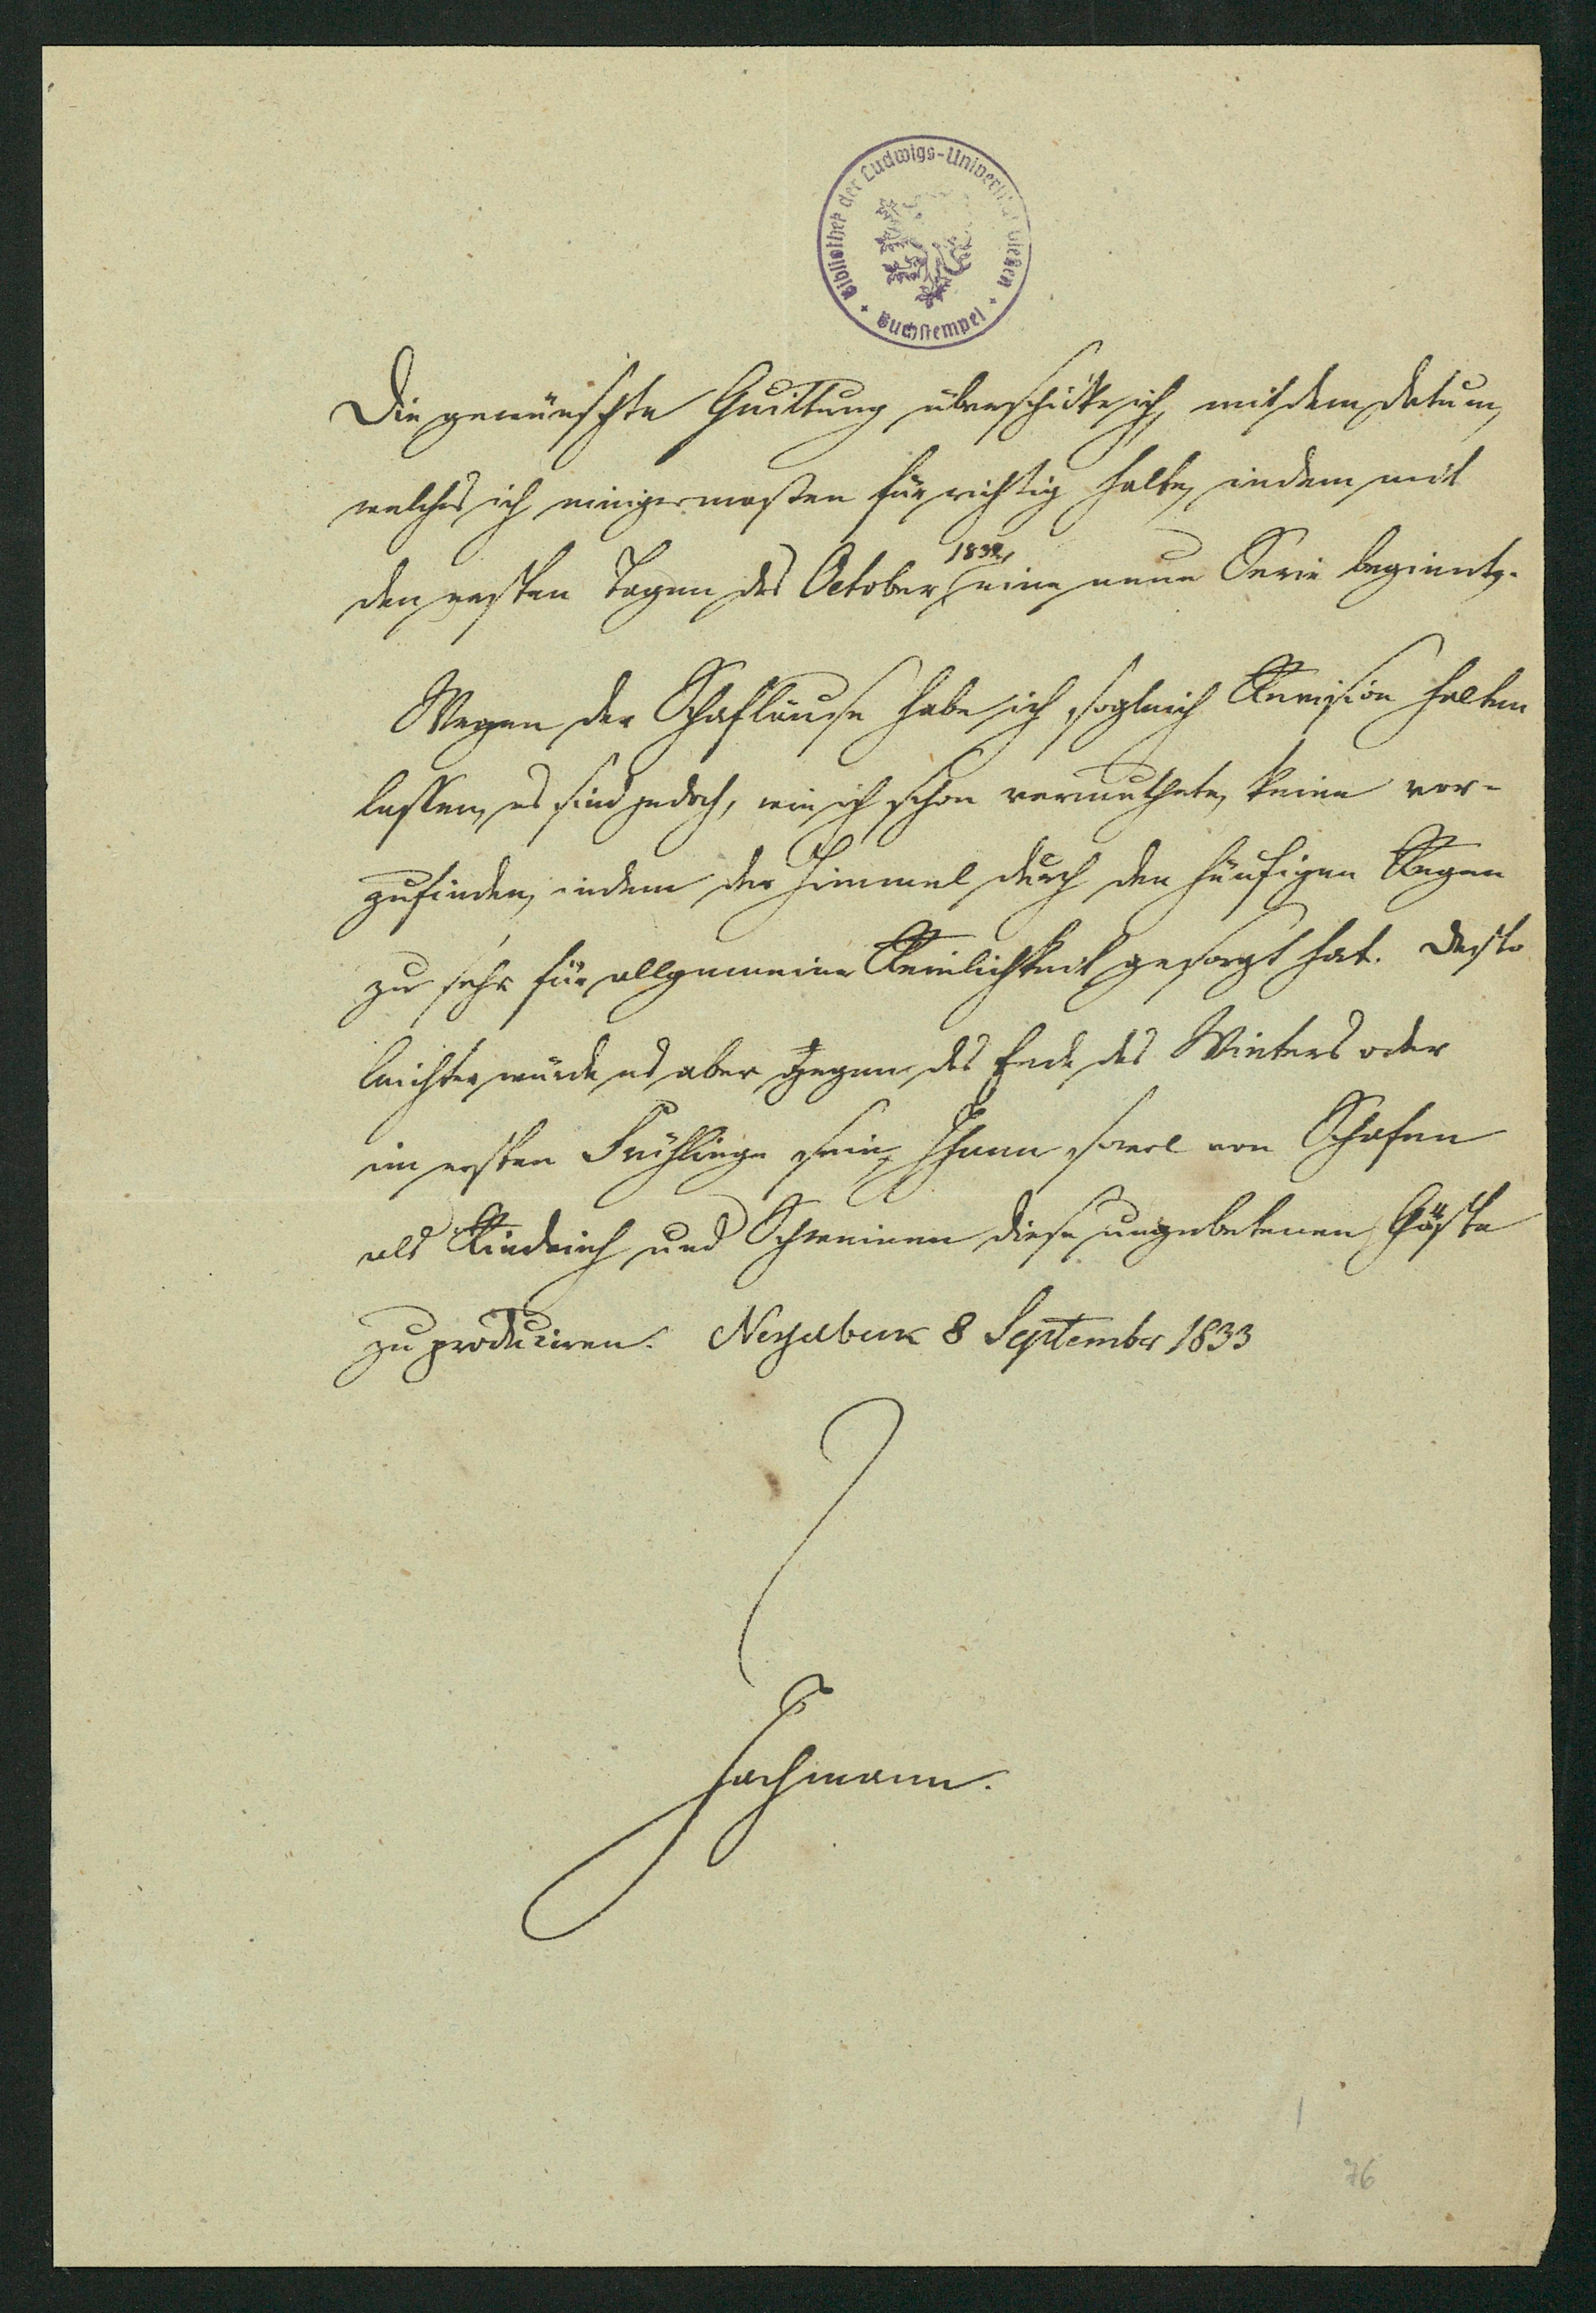 Bibliothek der Ludwigs-Universität Gießen
+ Buchstempel +
Die gewünschte Quittung überschicke ich, mit dem Datum,
welches ich einigermaßen für richtig halte, indem mit
den ersten Tagen des October 1832, eine neue Serie beginnt.
Wegen der Schafläuse habe ich sogleich Revision halten
lassen, es sind jedoch, wie ich schon vermuthete, keine vor-
zufinden, indem der Himmel durch den häufigen Regen
zu sehr für allgemeine Reinlichkeit gesorgt hat. Desto
leichter würde es aber gegen das Ende des Winters oder
im ersten Frühlinge sein, Ihnen sowol von Schafen
als Rindvieh und Schweinen diese ungebetenen Gäste
zu produciren. 8 September 1833
Jachmann.
1
76